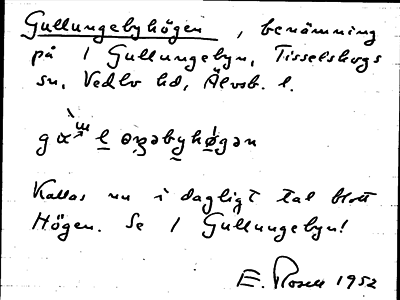 Gullungebyhögen, benämning
på 1 Gullungebyn, Tisselskogs
sn, Vedbo hd, Älvsb. l.
Kallas nu i dagligt tal blott
Högen. Se 1 Gullungebyn!
E. Rosell 1952